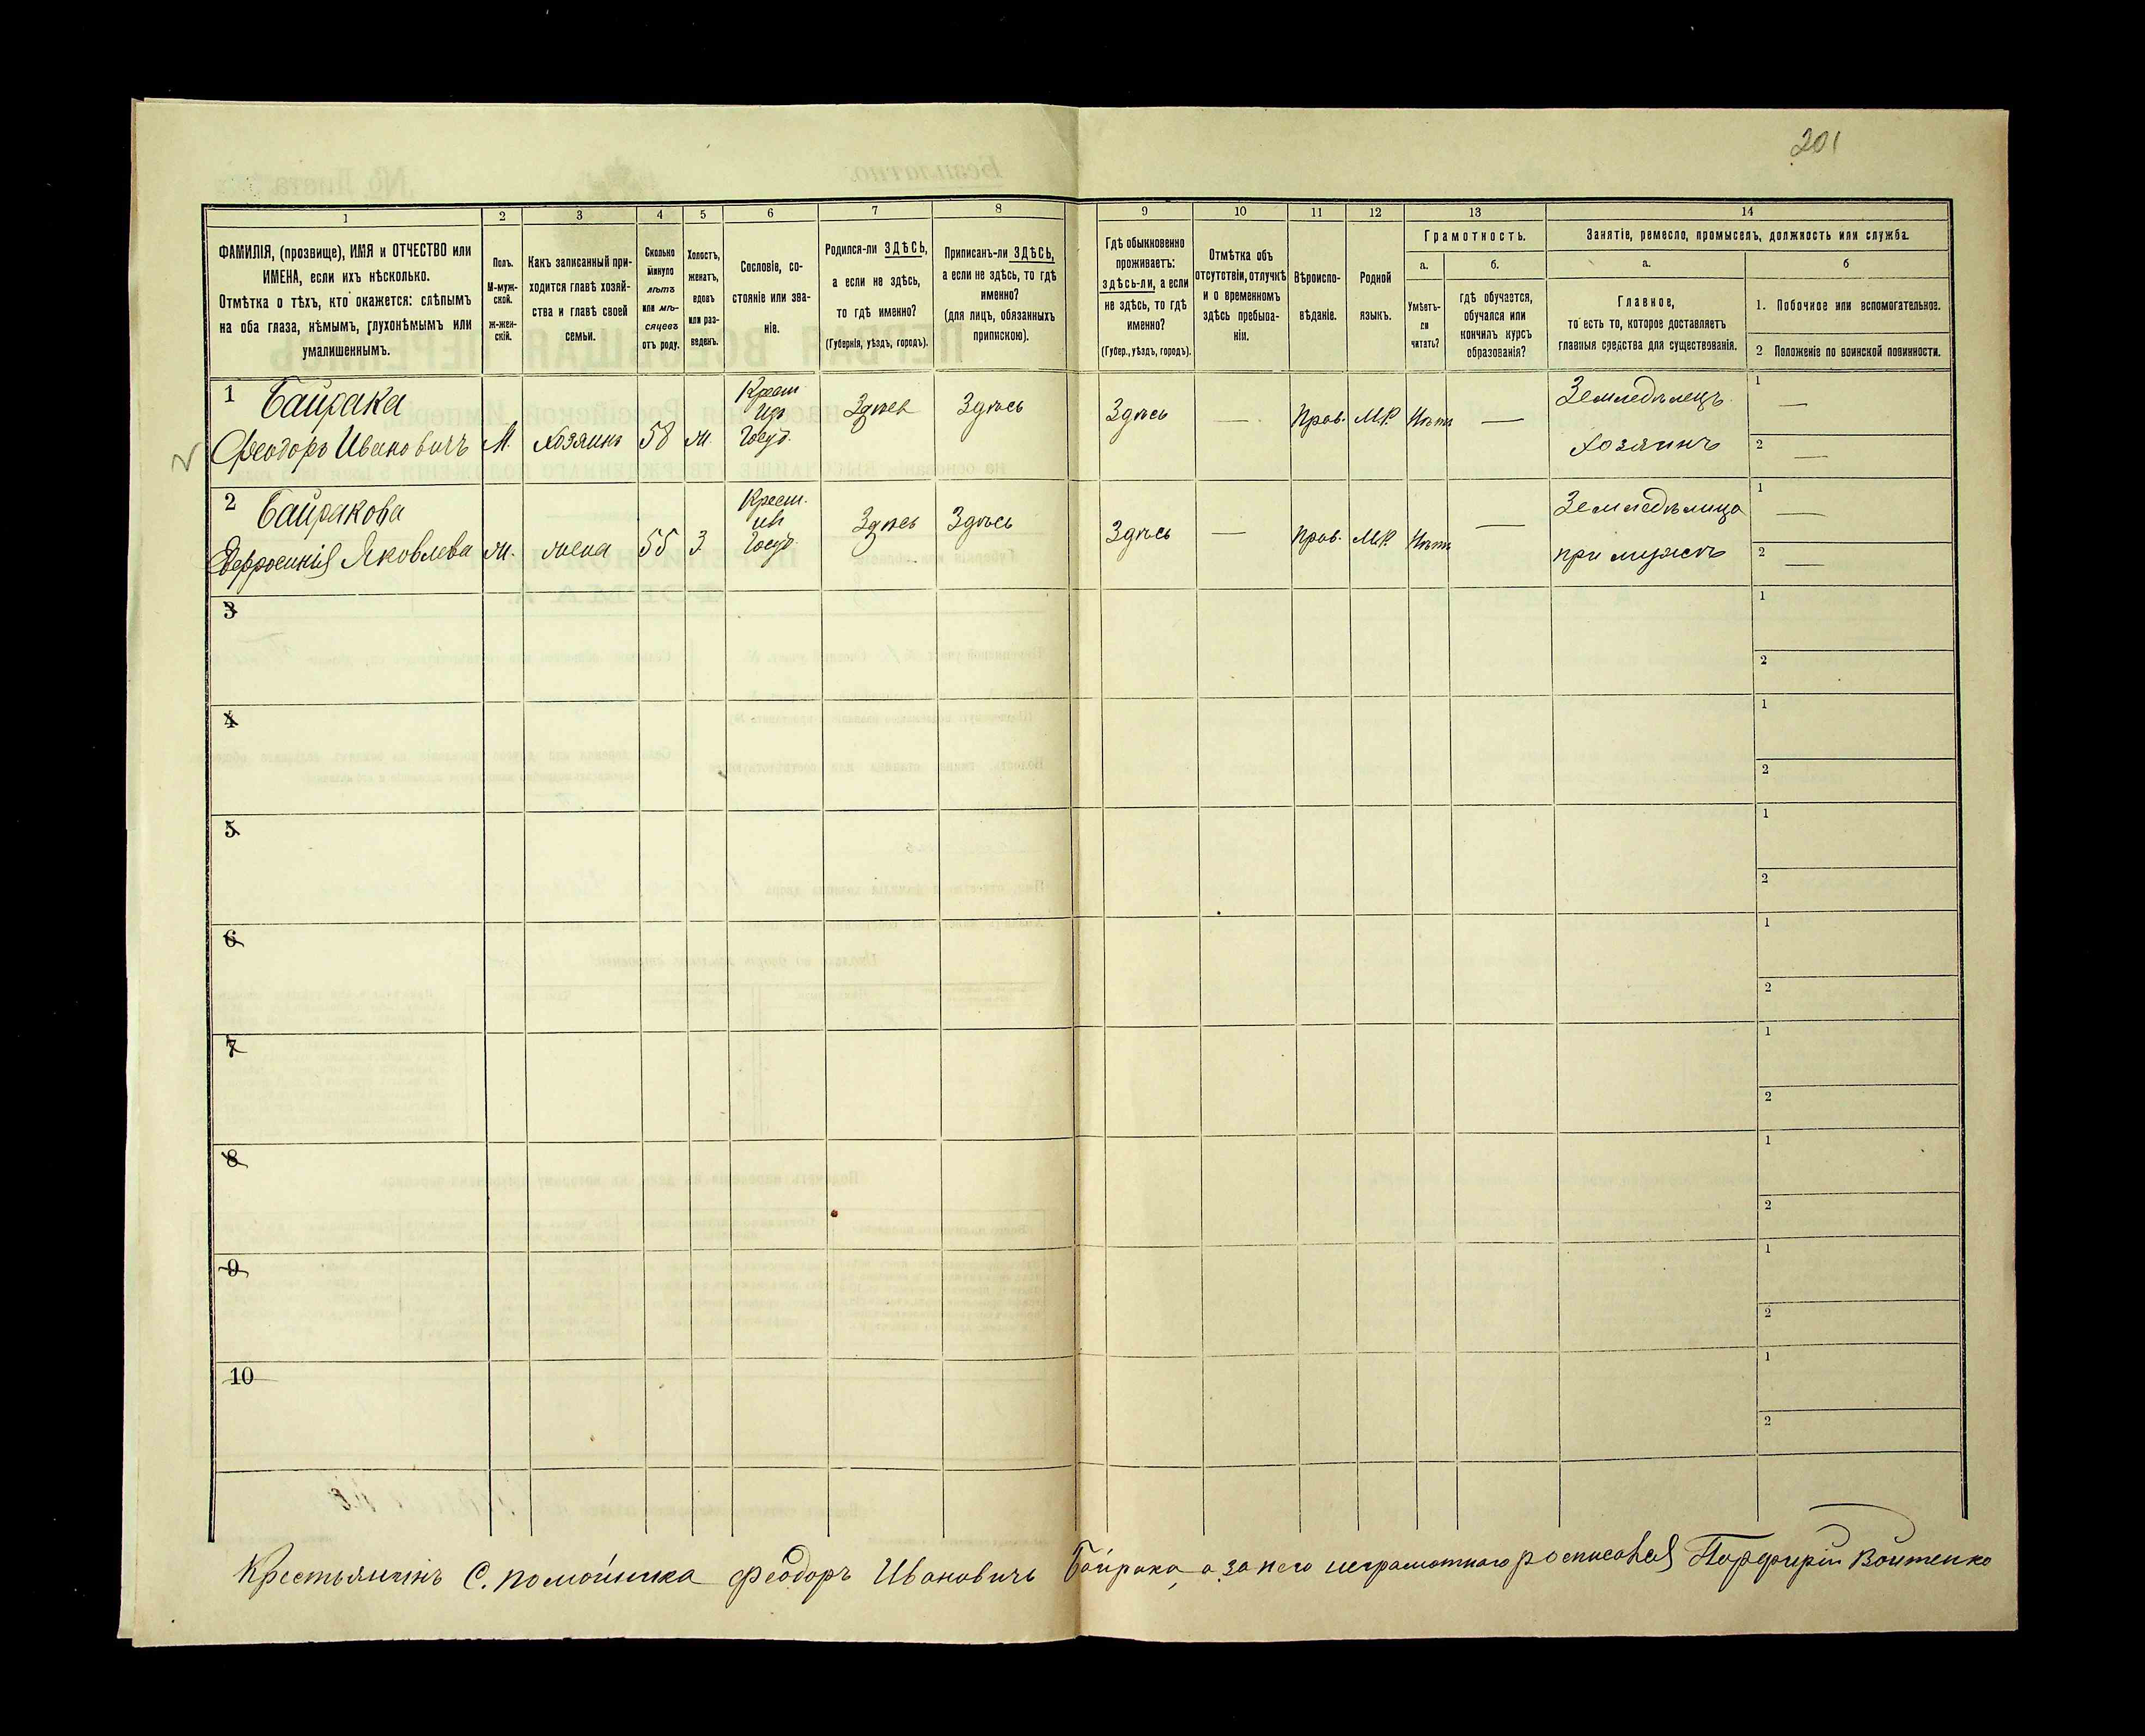 201
1 2 3 4 5 6 7 8 9 10 11 12 13 14
ФАМИЛІЯ, (прозвище), ИМЯ и ОТЧЕСТВО или
ИМЕНА, если ихъ нѣсколько.
Отмѣтка о тѣхъ, кто окажется: слѣпымъ
на оба глаза, нѣмымъ, глухонѣмымъ или
умалишеннымъ.
Полъ.
М-муж-
ской.
ж-жен-
скій.
Какъ записанный при-
ходится главѣ хозяй-
ства и главѣ своей
семьи.
Сколько
минуло
лѣтъ
или мѣ-
сяцевъ
отъ роду.
Холостъ,
женатъ,
вдовъ
или раз-
веденъ.
Сословіе, со-
стояніе или зва-
ніе.
Родился-ли ЗДѢСЬ,
а если не здѣсь,
то гдѣ именно?
(Губернія, уѣздъ, городъ).
Приписанъ-ли ЗДѢСЬ,
а если не здѣсь, то гдѣ
именно?
(для лицъ, обязанныхъ
припискою).
Гдѣ обыкновенно
проживаетъ:
здѣсь-ли, а если
не здѣсь, то гдѣ
именно?
(Губер., уѣздъ, городъ).
Отмѣтка объ
отсутствіи, отлучкѣ
и о временномъ
здѣсь пребыва-
ніи.
Вѣроиспо-
вѣданіе.
Родной
языкъ.
Грамотность.
а.
Умѣетъ-
ли
читать?
б.
гдѣ обучается,
обучался или
кончилъ курсъ
образованія?
Занятіе, ремесло, промыселъ, должность или служба.
а.
Главное,
то есть то, которое доставляетъ
главныя средства для существованія.
б
1. Побочное или вспомогательное.
2 Положеніе по воинской повинности.
1 Байрака
Феодоръ Ивановичъ М. хозяинъ 58 ж. Крест. изъ Госуд. Здѣсь Здѣсь Здѣсь — Прав. М.Р. Нѣтъ — Земледѣлецъ хозяинъ 1 — 2 —
2 Байракова
Евфросинія Яковлева ж. жена 55 З Крест. изъ Госуд. Здѣсь Здѣсь Здѣсь — Прав. М.Р. Нѣтъ — Земледѣлица при мужѣ 1 — 2 —
3 1
2
4 1
2
5 1
2
6 1
2
7 1
2
8 1
2
9 1
2
10 1
2
Крестьянинъ С. Феодоръ Ивановичъ Байрака, а за него неграмотнаго росписався Порфирій Войтенко